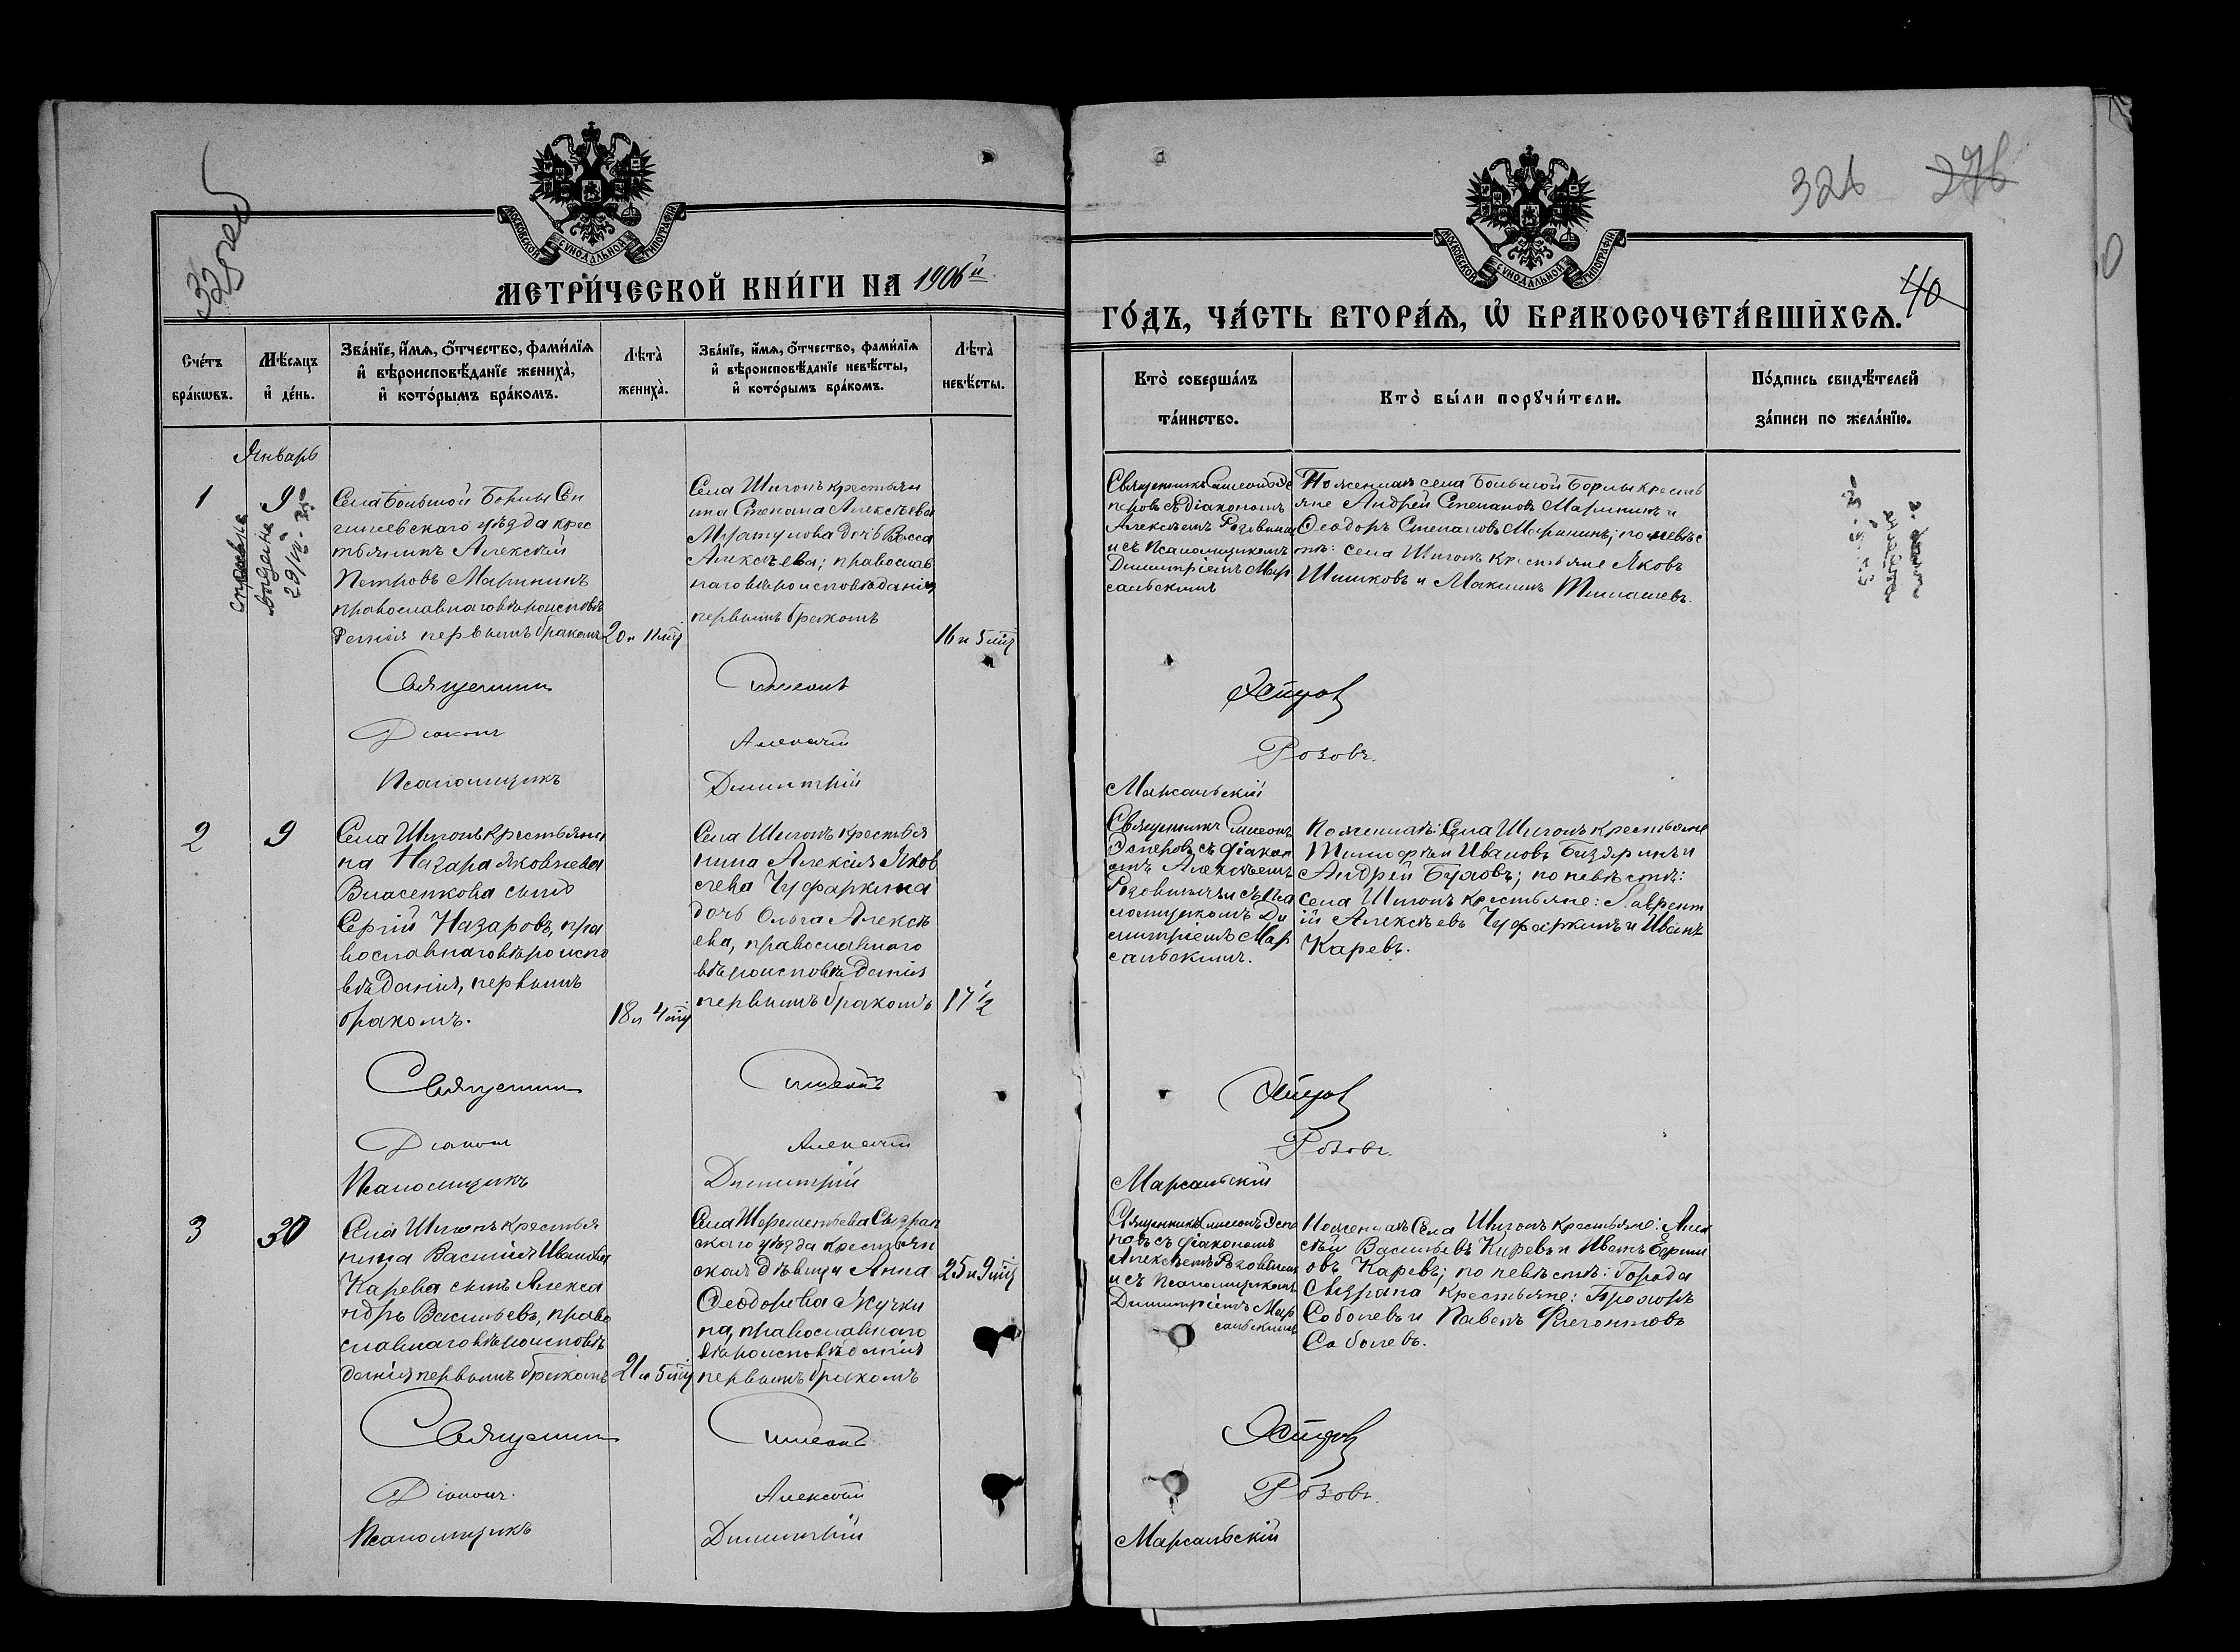 МОСКОВСКОЙ СѴНОДАЛЬНОЙ ТИПОГРАФІИ.
МЕТРИ́ЧЕСКОЙ КНИ́ГИ НА 1906й
Сче́тъ бра́кѡвъ.
Мѣ́сяцъ и҆ де́нь.
Зва́нїе, и҆́мѧ, ѻ҆́тчество, фами́лїѧ
и҆ вѣроисповѣ́данїе жениха̀,
и҆ кото́рымъ бра́комъ.
Лѣта̀ жениха̀.
Зва́нїе, и҆́мѧ, ѻ҆́тчество, фами́лїѧ
и҆ вѣроисповѣ́данїе невѣ́сты,
и҆ кото́рымъ бра́комъ.
Лѣта̀ невѣ́сты.
Январь
1
9
Села Большой Борлы Сен
гилеевскаго уѣзда крес
тьянинъ Алексѣй
Петровъ Марининъ
православнаго вѣроисповѣ
данія первымъ бракомъ
20 и 11 мц
Села Шигонъ крестьян
ина Степана Алексѣева
дочь Васса
Алексѣева; православ
наго вѣроисповѣданія
первымъ бракомъ
16 и 5 мц
Священникъ
Симеонъ
Діаконъ
Алексѣй
Псаломщикъ
Димитрій
2
9
Села Шигонъ крестьяни
на Назара Яковлева
Власенкова сынъ
Сергій Назаровъ, пра
вославнаго вѣроиспо
вѣданія, первымъ
бракомъ.
18 и 4 мц
Села Шигонъ крестья
нина Алексія Яков
лева Чуфаркина
дочь Ольга Алексѣ
ева, православнаго
вѣроисповѣданія
первымъ бракомъ
17 1/2
Священникъ
Симеонъ
Діаконъ
Алексѣй
Псаломщикъ
Димитрій
3
30
Села Шигонъ крестья
нина Василія Иванова
Карева сынъ Алекса
ндръ Васильевъ, право
славнаго вѣроисповѣ
данія первымъ бракомъ
21 и 5 мц
Села Шереметьева Сызран
скаго уѣзда крестьян
ская дѣвица Анна
Ѳеодорова Жучки
на, православнаго
вѣроисповѣданія
первымъ бракомъ
25 и 9 мц
Священникъ
Симеонъ
Діаконъ
Алексѣй
Псаломщикъ
Димитрій
40
МОСКОВСКОЙ СѴНОДАЛЬНОЙ ТИПОГРАФІИ.
ГО́ДЪ, ЧА́СТЬ ВТОРА́Ѧ, Ѡ҆ БРАКОСОЧЕТА́ВШИХСѦ.
Кто̀ соверша́лъ та́инство.
Кто̀ бы́ли порꙋчи́тели.
По́дпись свидѣ́телей
за́писи по жела́нїю.
Священникъ Симеонъ Эс
перовъ съ діакономъ
Алексѣемъ Розовымъ
и съ псаломщикомъ
Димитріемъ Мар
сальскимъ
По женихѣ села Большой Борлы кресть
яне Андрей Степановъ Марининъ и
Ѳеодоръ Степановъ Марининъ; по невѣс
тѣ: села Шигонъ крестьяне Яковъ
Шишковъ и Максимъ Тимашевъ.
Эсперовъ
Розовъ.
Марсальскій
Священникъ Симеонъ
Эсперовъ съ діакон
омъ Алексѣемъ
Розовымъ и съ пса
ломщикомъ Ди
митріемъ Мар
сальскимъ.
По женихѣ: Села Шигонъ крестьяне
Тимофѣй Ивановъ и
Андрей; по невѣстѣ:
села Шигонъ крестьяне: Лаврент
ій Алексѣевъ Чуфаркинъ и Иванъ
Каревъ.
Эсперовъ
Розовъ.
Марсальскій
Священникъ Симеонъ Эспе
ровъ съ діакономъ
Алексѣемъ Розовымъ
и съ псаломщикомъ
Димитріемъ Мар
сальскимъ
По женихѣ Села Шигонъ крестьяне: Алек
сѣй Васильевъ Каревъ и Иванъ
Каревъ; по невѣстѣ: Города
Сызрана крестьяне: Прохоръ
Соболевъ и Павелъ Флегонтовъ
Соболевъ.
Эсперовъ
Розовъ.
Марсальскій